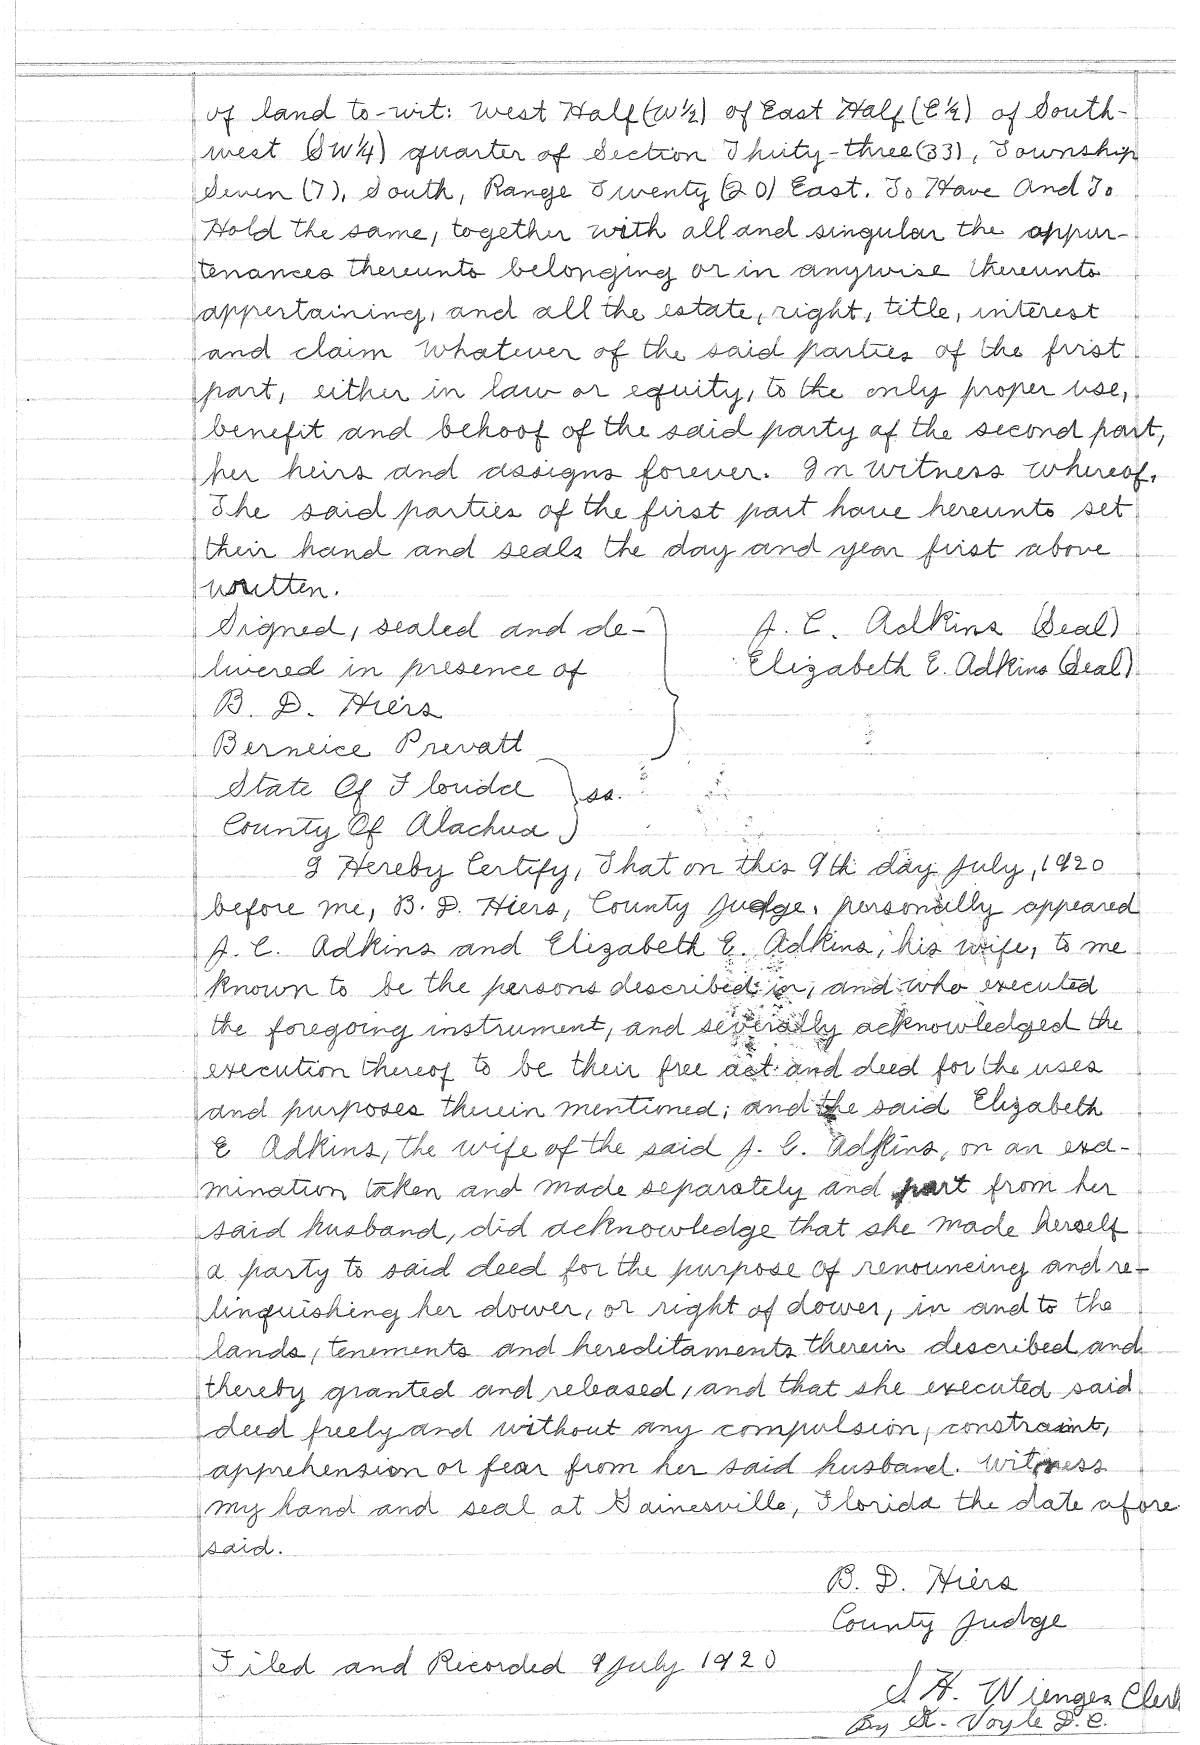 of land to-wit: West Half (W½) of East Half (E½) of South-
west (SW¼) quarter of Section Thirty-three (33), Township
Seven (7), South, Range Twenty (20) East. To Have And To
Hold the same, together with all and singular the appur-
tenances thereunto belonging or in anywise thereunto
appertaining, and all the estate, right, title, interest
and claim whatever of the said parties of the first
part, either in law or equity, to the only proper use,
benefit and behoof of the said party of the second part,
her heirs and assigns forever. In Witness Whereof,
The said parties of the first part have hereunto set
their hand and seals the day and year first above
written.
Signed, sealed and de- J. C. Adkins (Seal)
livered in presence of Elizabeth E. Adkins (Seal)
B. D. Hiers
Berneice Prevatt
State Of Florida } ss.
County Of Alachua
I Hereby Certify, That on this 9th day July, 1920
before me, B. D. Hiers, County Judge, personally appeared
J. C. Adkins and Elizabeth E. Adkins, his wife, to me
known to be the persons described in, and who executed
the foregoing instrument, and severally acknowledged the
execution thereof to be their free act and deed for the uses
and purposes therein mentioned; and the said Elizabeth
E Adkins, the wife of the said J. C. Adkins, on an exa-
mination taken and made separately and part from her
said husband, did acknowledge that she made herself
a party to said deed for the purpose of renouncing and re-
linquishing her dower, or right of dower, in and to the
lands, tenements and hereditaments therein described and
thereby granted and released, and that she executed said
deed freely and without any compulsion, constraint,
apprehension or fear from her said husband. Witness
my hand and seal at Gainesville, Florida the date afore
said.
B. D. Hiers
County Judge
Filed and Recorded 9 July 1920
S H. Wienges Clerk
By St. Voyle D.C.